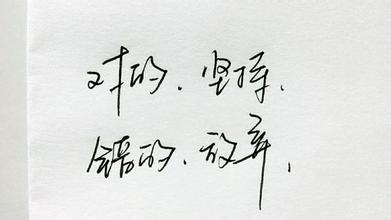 对的、坚持、
错的、放弃、